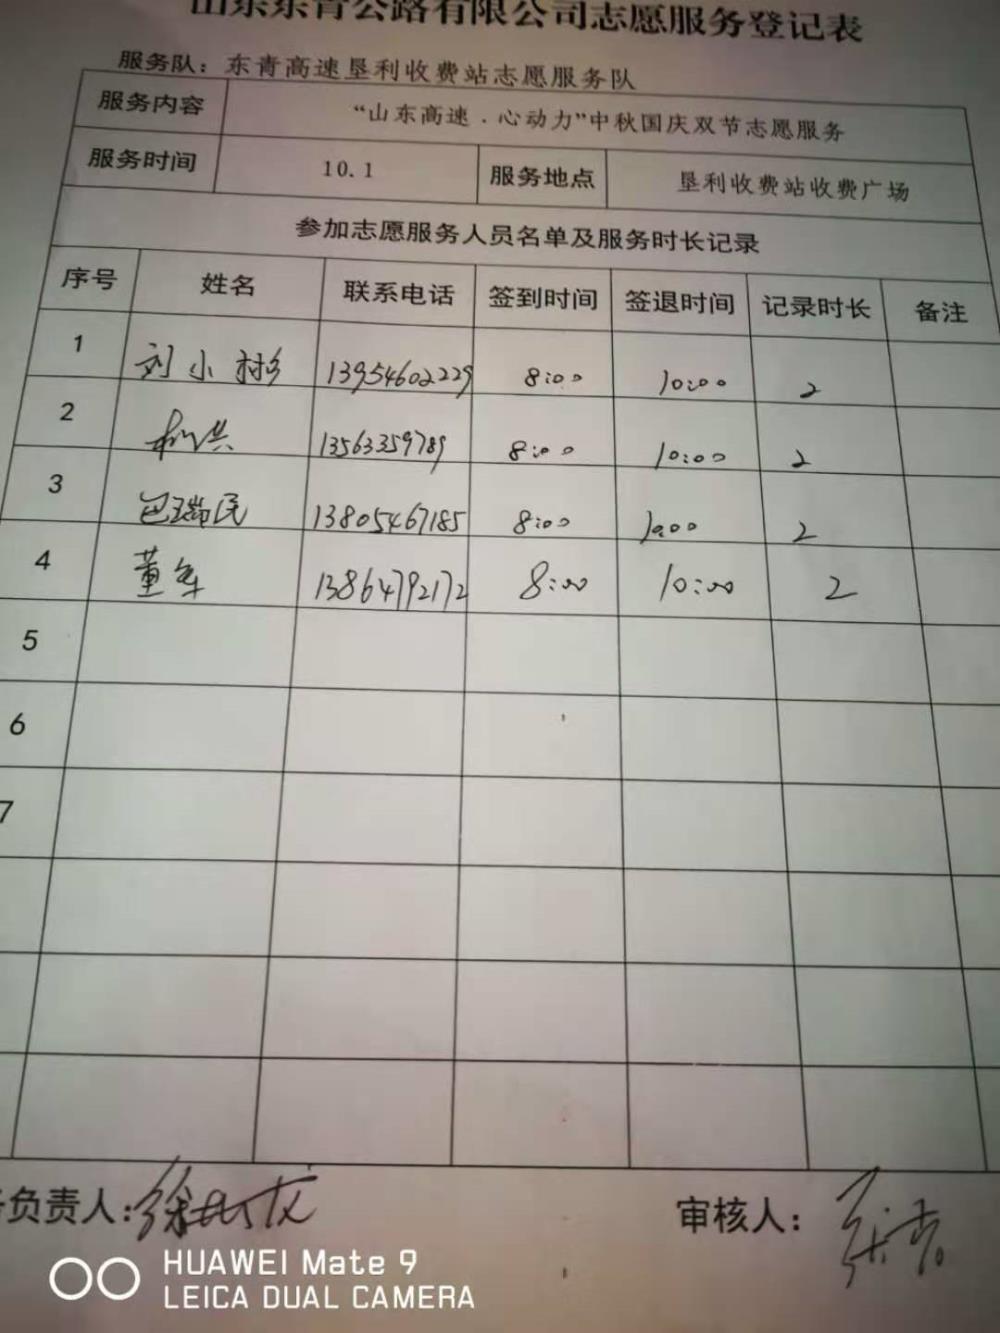 山东东青公路有限公司志愿服务登记表
服务队：东青高速垦利收费站志愿服务队
服务内容 “山东高速．心动力”中秋国庆双节志愿服务
服务时间 10.1 服务地点 垦利收费站收费广场
参加志愿服务人员名单及服务时长记录
序号 姓名 联系电话 签到时间 签退时间 记录时长 备注
1 刘小彬 13954602229 8:00 10:00 2
2 13563359789 8:00 10:00 2
3 巴瑞民 13805467185 8:00 10:00 2
4 董军 13864792172 8:00 10:00 2
5
6
7
务负责人: 审核人：
HUAWEI Mate 9
LEICA DUAL CAMERA